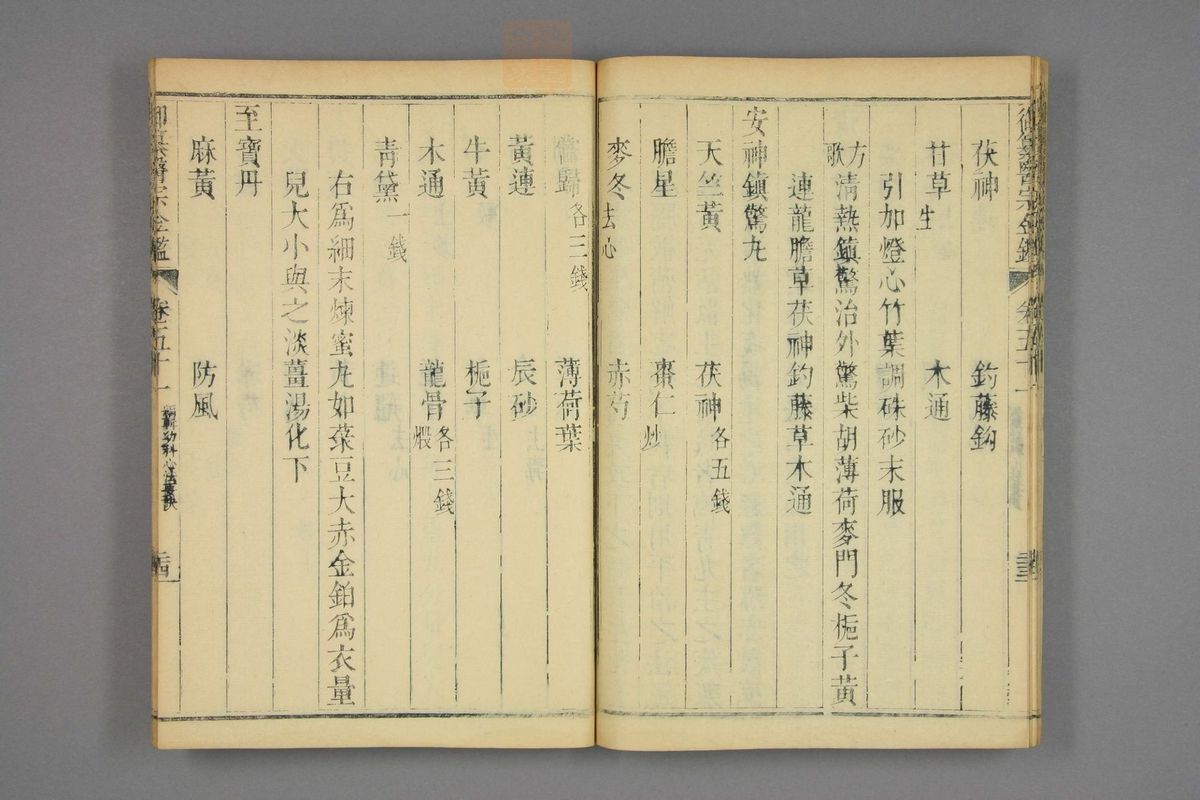 御纂醫宗金鑑 卷五十一
茯神 釣藤鈎
甘草生 木通
引加燈心竹葉調硃砂末服
方歌 清熱鎮驚治外驚柴胡薄荷麥門冬梔子黃
連龍膽草茯神釣藤草木通
安神鎮驚丸
天竺黃 茯神各五錢
膽星 棗仁炒
麥冬去心 赤芍
當歸各三錢 薄荷葉
黃連 辰砂
牛黃 梔子
木通 龍骨煅 各三錢
青黛一錢
右爲細末煉蜜丸如菉豆大赤金鉑爲衣量
兒大小與之淡薑湯化下
至寶丹
麻黃 防風
御纂醫宗金鑑 卷五十一 編輯幼科心法要訣 二十四